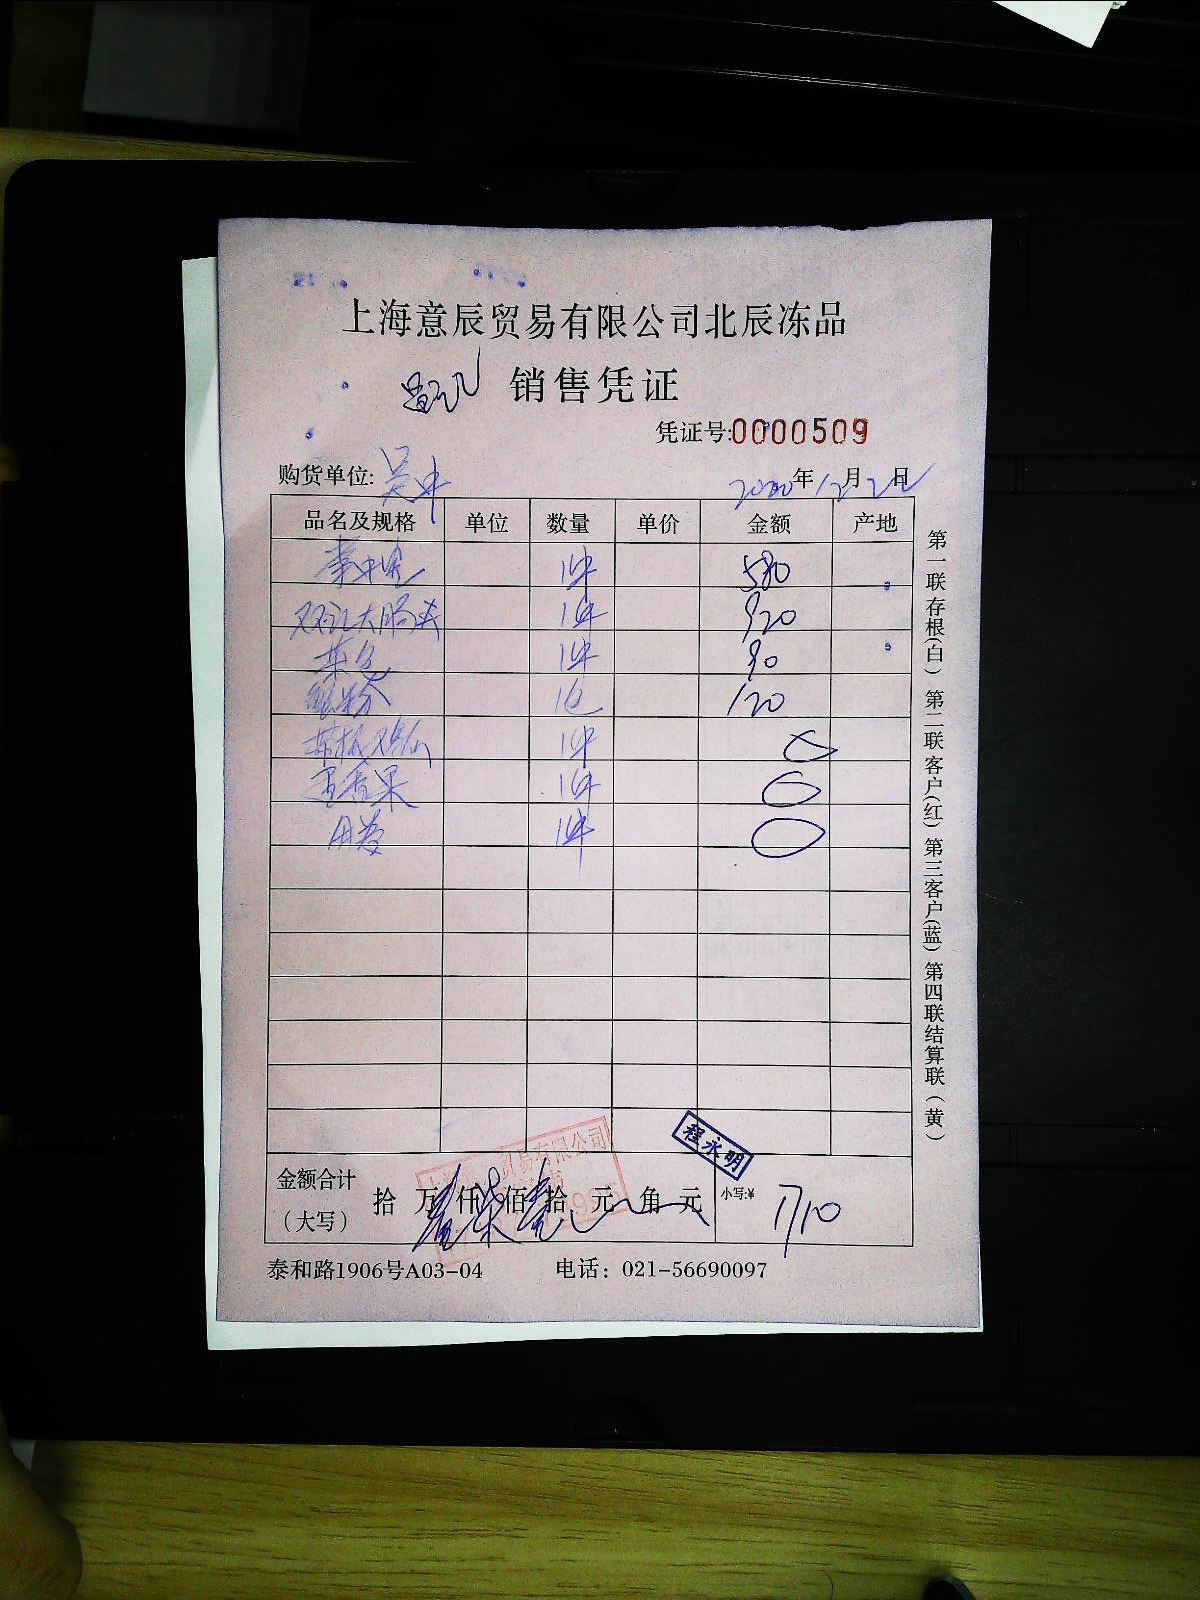 上海意辰贸易有限公司北辰冻品
销售凭证
凭证号:0000509
购货单位: 吴中
2020年12月22日
品名及规格 单位 数量 单价 金额 产地
1件 580
双汇大肠头 1件 920
1件 90
1包 120
1件 0
百香果 1件 0
1件 0
金额合计
（大写）
拾 万 仟 佰 拾 元 角 元
壹 柒 壹
小写:¥ 1710
程永明
贸易有限公司
泰和路1906号A03-04 电话：021-56690097
第一联存根(白) 第二联客户(红) 第三客户(蓝) 第四联结算联(黄)